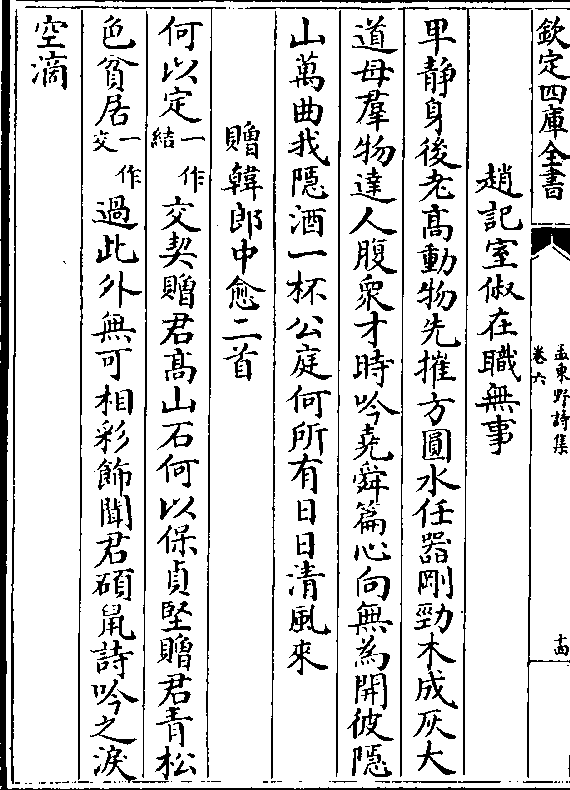 欽定四庫全書
孟東野詩集
卷六
十四
趙記室俶在職無事
卑静身後老髙動物先摧方圓水任器剛勁木成灰大
道母羣物達人腹衆才時吟堯舜篇心向無為開彼隠
山萬曲我隠酒一杯公庭何所有日日清風來
贈韓郎中愈二首
何以定一作結交契贈君髙山石何以保貞堅贈君青松
色貧居一作交過此外無可相彩飾聞君碩鼠詩吟之淚
空滴